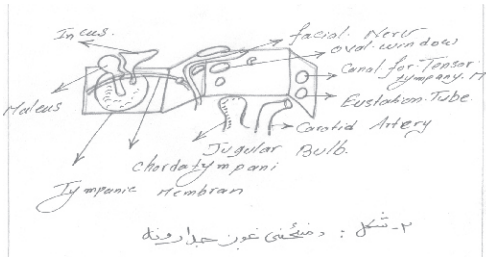 Incus.
facial. Nerv
oval. window
Canal for. Tensor.
tympany. M
Maleus
Eustation. Tube.
Carotid Artery
Jugular Bulb.
chorda tympani
Tympanic Membran
۲- شکل: د منځني غوږ جدارونه